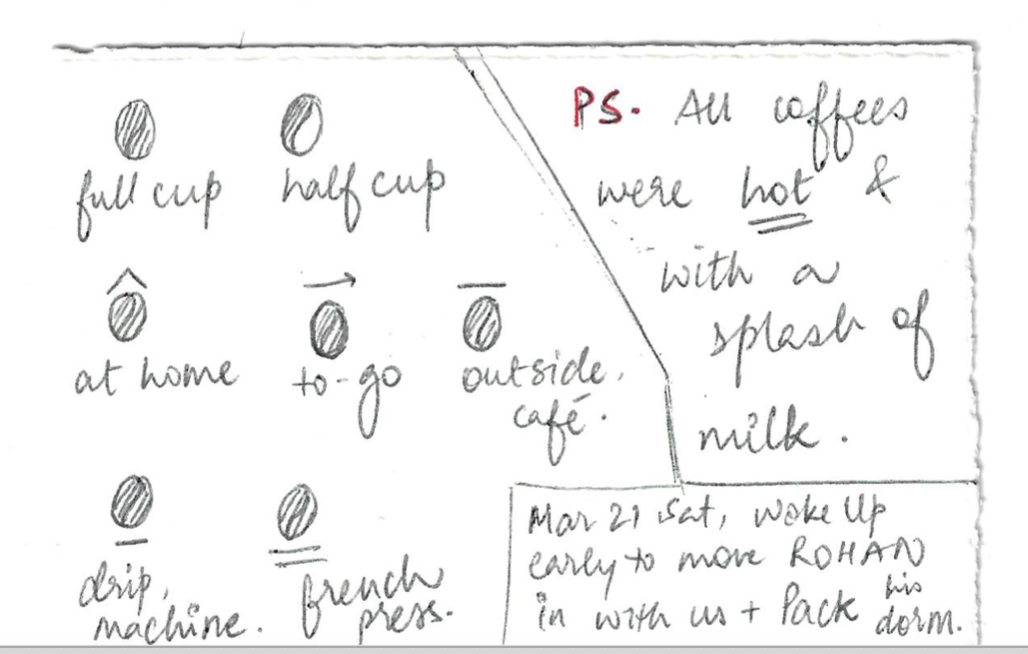 full cup
half cup
at home
to-go
outside.
café.
drip.
machine.
french
press.
PS. All coffees
were hot &
with a
splash of
milk.
Mar 21 Sat, woke up
early to move ROHAN
in with us + Pack his
dorm.